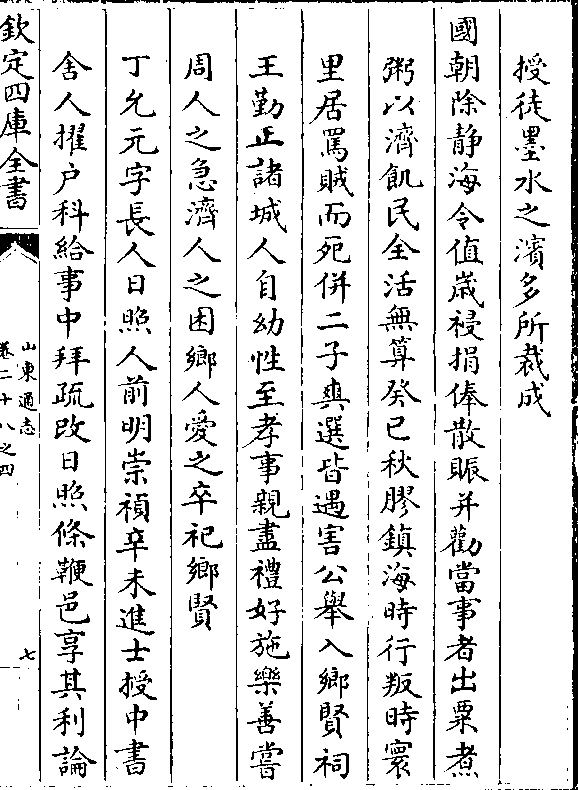 授徒墨水之濱多所裁成
國朝除静海令值歲祲捐俸散賑并勸當事者出粟煮
粥以濟飢民全活無算癸巳秋膠鎮海時行叛時寰
里居罵賊而死併二子爽選皆遇害公舉入鄉賢祠
王勤正諸城人自幼性至孝事親盡禮好施樂善嘗
周人之急濟人之困鄉人愛之卒祀鄉賢
丁允元字長人日照人前明崇禎辛未進士授中書
舍人擢户科給事中拜疏改日照條鞭邑享其利論
欽定四庫全書
山東通志
卷二十八之四
七